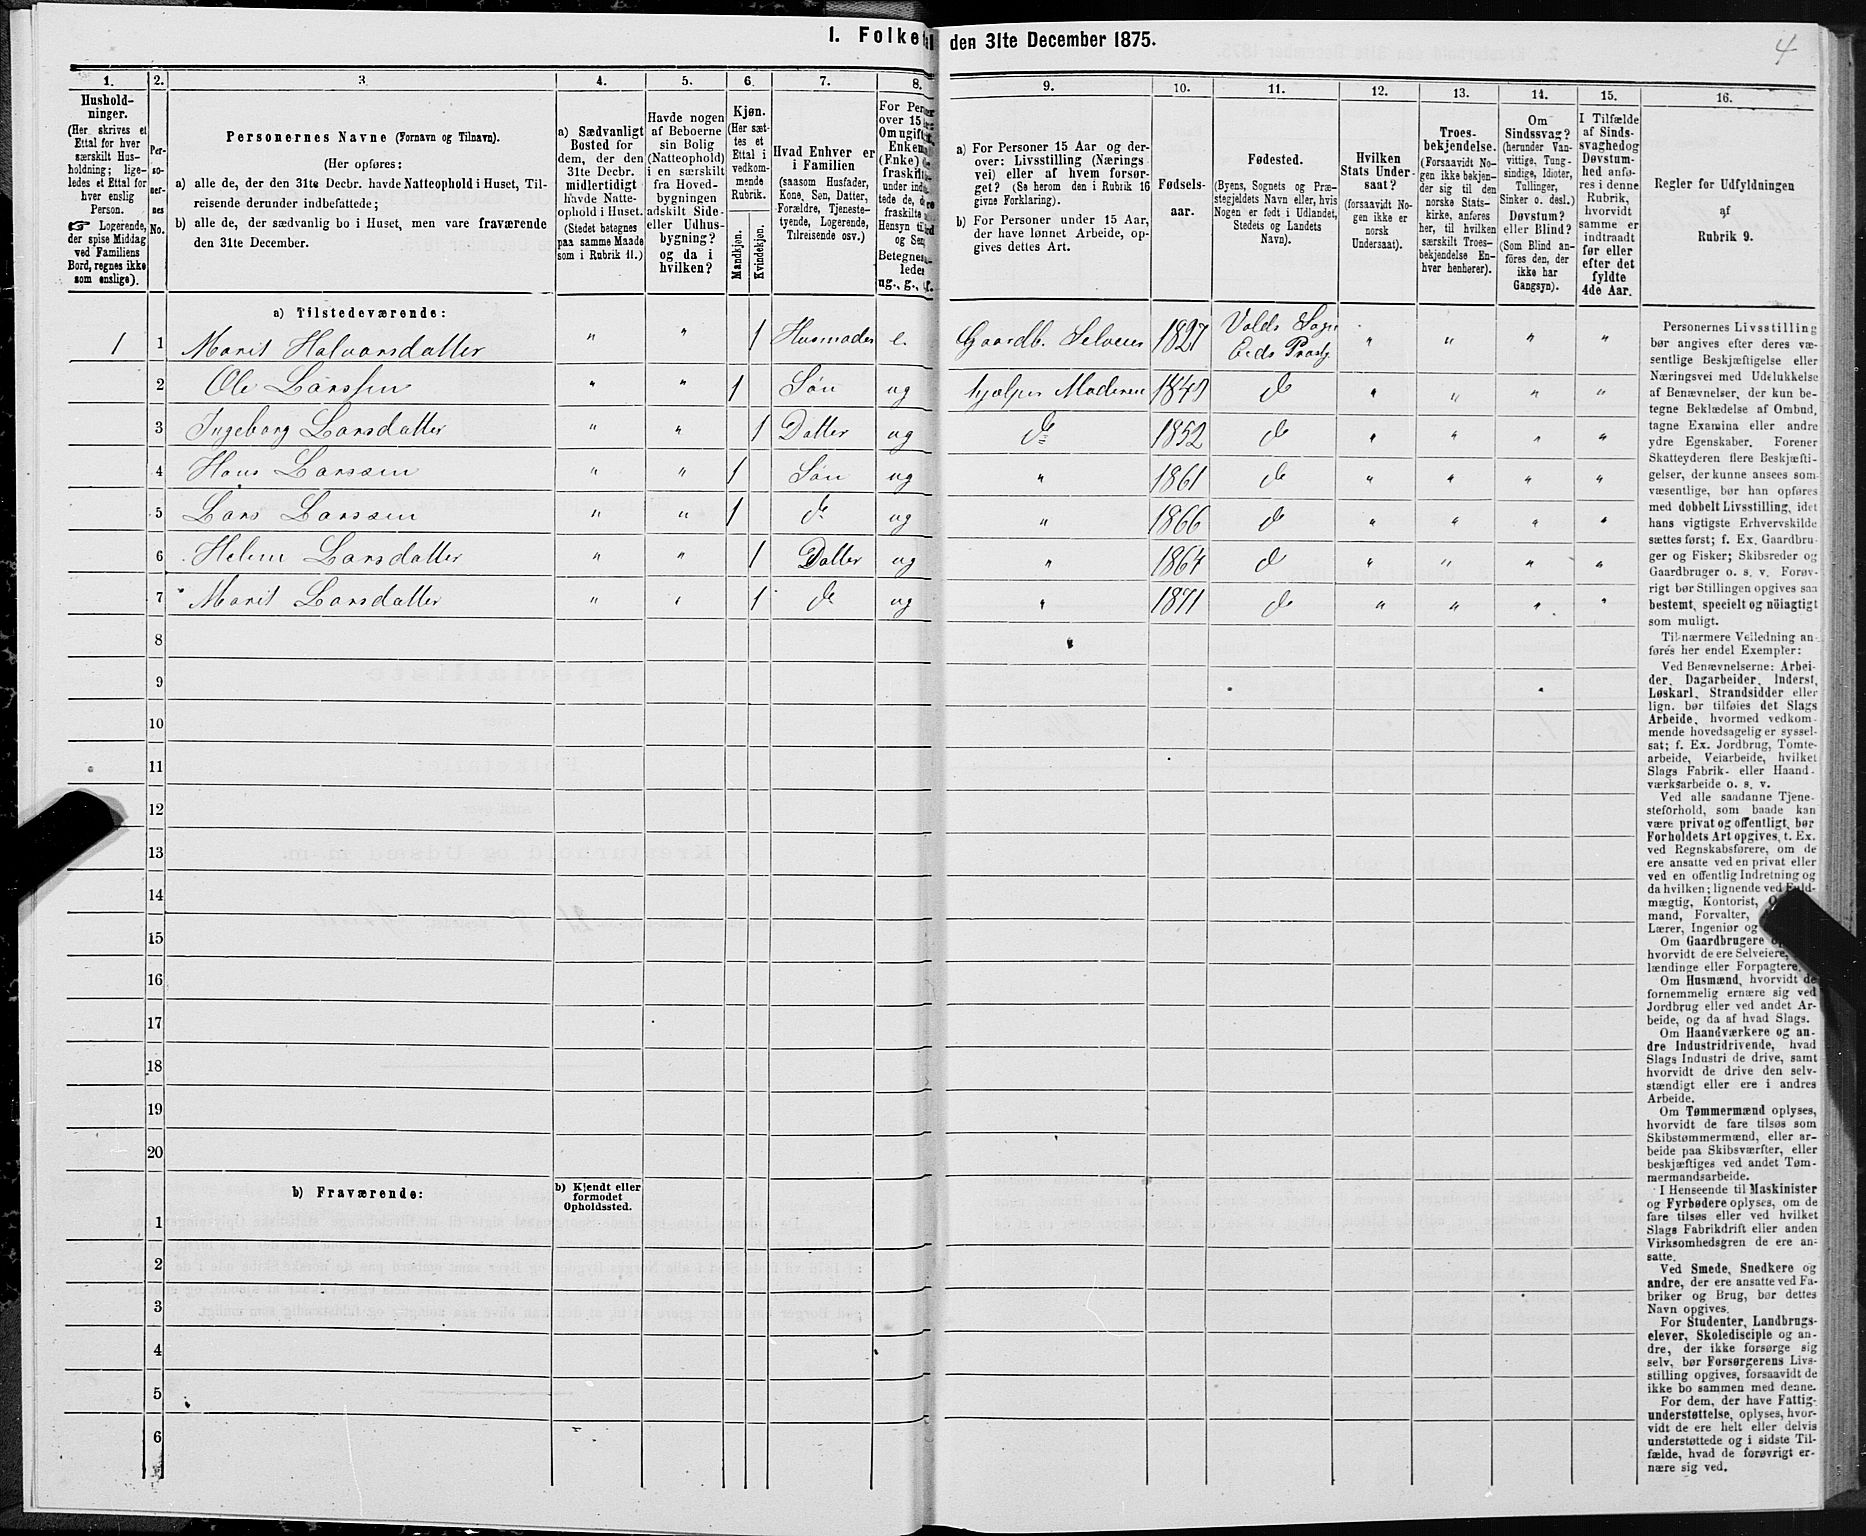 I. Folketal den 31te December 1875.
4
1.
Hushold-
ninger.
(Her skrives et
Ettal for hver
særskilt Hus-
holdning; lige-
ledes et Ettal for
hver enslig
Person.
☞ Logerende,
der spise Middag
ved Familiens
Bord, regnes ikke
som enslige).
2.
Per-
so-
ner-
nes
No.
3.
Personernes Navne (Fornavn og Tilnavn).
(Her opføres:
a) alle de, der den 31te Decbr. havde Natteophold i Huset, Til-
reisende derunder indbefattede;
b) alle de, der sædvanlig bo i Huset, men vare fraværende
den 31te December.
4.
a) Sædvanligt
Bosted for
dem, der den
31te Decbr.
midlertidigt
havde Natte-
ophold i Huset.
(Stedet betegnes
paa samme Maade
som i Rubrik 11.)
5.
Havde nogen
af Beboerne
sin Bolig
(Natteophold)
i en særskilt
fra Hoved-
bygningen
adskilt Side-
eller Udhus-
bygning?
og da i
hvilken?
6.
Kjøn.
(Her sæt-
tes et
Ettal i
vedkom-
mende
Rubrik.
Mandkjøn.
Kvindekjøn.
7.
Hvad Enhver er
i Familien
(saasom Husfader,
Kone, Søn, Datter,
Forældre, Tjeneste-
tyende, Logerende,
Tilreisende osv.)
8.
For Per
over 15
Om ugift
Enkem
(Enke)
fraskilt
under indt
tede de,
fraskilte
Hensyn til
og Sen
Betegnes
ledes
ug., g., f.
9.
a) For Personer 15 Aar og der-
over: Livsstilling (Nærings
vei) eller af hvem forsør-
get? (Se herom den i Rubrik 16
givne Forklaring).
b) For Personer under 15 Aar,
der have lønnet Arbeide, op-
gives dettes Art.
10.
Fødsels-
aar.
11.
Fødested.
(Byens, Sognets og Præ-
stegjeldets Navn eller, hvis
Nogen er født i Udlandet,
Stedets og Landets
Navn).
12.
Hvilken
Stats Under-
saat?
(forsaavidt No-
gen ikke er
norsk
Undersaat).
13.
Troes-
bekjendelse.
(Forsaavidt No-
gen ikke bekjen-
der sig til den
norske Stats-
kirke, anføres
her, til hvilken
særskilt Troes-
bekjendelse En-
hver henhører).
14.
Om
Sindssvag?
(herunder Van-
vittige, Tung-
sindige, Idioter,
Tullinger,
Sinker o. desl.)
Døvstum?
eller Blind?
(Som Blind an-
føres den, der
ikke har
Gangsyn).
15.
I Tilfælde
af Sinds-
svaghed og
Døvstum-
hed anfø-
res i denne
Rubrik,
hvorvidt
samme er
indtraadt
før eller
efter det
fyldte
4de Aar.
16.
Regler for Udfyldningen
af
Rubrik 9.
a) Tilstedeværende:
1 1 Marit Halvarsdatter " " 1 Husmoder e. Gaardb. Selveier 1827 Volds Sogn Eids Præstg. " " " "
2 Ole Larssen " " 1 Søn ug hjælper Moderen 1849 do " " " "
3 Ingeborg Larsdatter " " 1 Datter ug do 1852 do " " " "
4 Hans Larssen " " 1 Søn ug " 1861 do " " " "
5 Lars Larssen " " 1 do ug " 1866 do " " " "
6 Helene Larsdatter " " 1 Datter ug " 1864 do " " " "
7 Marit Larsdatter " " 1 do ug " 1871 do " " " "
8
9
10
11
12
13
14
15
16
17
18
19
20
b) Fraværende:
b) Kjendt eller
formodet
Opholdssted.
1
2
3
4
5
6
Personernes Livsstilling
bør angives efter deres væ-
sentlige Beskjæftigelse eller
Næringsvei med Udelukkelse
af Benævnelser, der kun be-
tegne Beklædelse af Ombud,
tagne Examina eller andre
ydre Egenskaber. Forener
Skatteyderen flere Beskjæfti-
gelser, der kunne ansees som
væsentlige, bør han opføres
med dobbelt Livsstilling, idet
hans vigtigste Erhvervskilde
sættes først; f. Ex. Gaardbru-
ger og Fisker; Skibsreder og
Gaardbruger o. s. v. Forøv-
rigt bør Stillingen opgives saa
bestemt, specielt og nöiagtigt
som muligt.
Til nærmere Veiledning an-
føres her endel Exempler:
Ved Benævnelserne: Arbei-
der, Dagarbeider, Inderst,
Løskarl, Strandsidder eller
lign. bør tilføies det Slags
Arbeide, hvormed vedkom-
mende hovedsagelig er syssel-
sat; f. Ex. Jordbrug, Tomte-
arbeide, Veiarbeide, hvilket
Slags Fabrik- eller Haand-
værksarbeide o. s. v.
Ved alle saadanne Tjene-
steforhold, som baade kan
være privat og offentligt, bør
Forholdets Art opgives, t. Ex.
ved Regnskabsførere, om de
ere ansatte ved en privat eller
ved en offentlig Indretning og
da hvilken; lignende ved Fuld-
mægtig, Kontorist, O
mand, Forvalter,
Lærer, Ingeniør og
Om Gaardbrugere op
hvorvidt de ere Selveiere,
lændinge eller Forpagtere.
Om Husmænd, hvorvidt de
fornemmelig ernære sig ved
Jordbrug eller ved andet Ar-
beide, og da af hvad Slags.
Om Haandværkere og an-
dre Industridrivende, hvad
Slags Industri de drive, samt
hvorvidt de drive den selv-
stændigt eller ere i andres
Arbeide.
Om Tømmermænd oplyses,
hvorvidt de fare tilsøs som
Skibstømmermænd, eller ar-
beide paa Skibsværfter, eller
beskjæftiges ved andet Tøm-
mermandsarbeide.
I Henseende til Maskinister
og Fyrbødere oplyses, om de
fare tilsøs eller ved hvilket
Slags Fabrikdrift eller anden
Virksomhedsgren de ere an-
satte.
Ved Smede, Snedkere og
andre, der ere ansatte ved Fa-
briker og Brug, bør dettes
Navn opgives.
For Studenter, Landbrugs-
elever, Skoledisciple og an-
dre, der ikke forsørge sig
selv, bør Forsørgerens Livs-
stilling opgives, forsaavidt de
ikke bo sammen med denne.
For dem, der have Fattig-
understøttelse, oplyses, hvor-
vidt de ere helt eller delvis
understøttede og i sidste Til-
fælde, hvad de forøvrigt er-
nære sig ved.